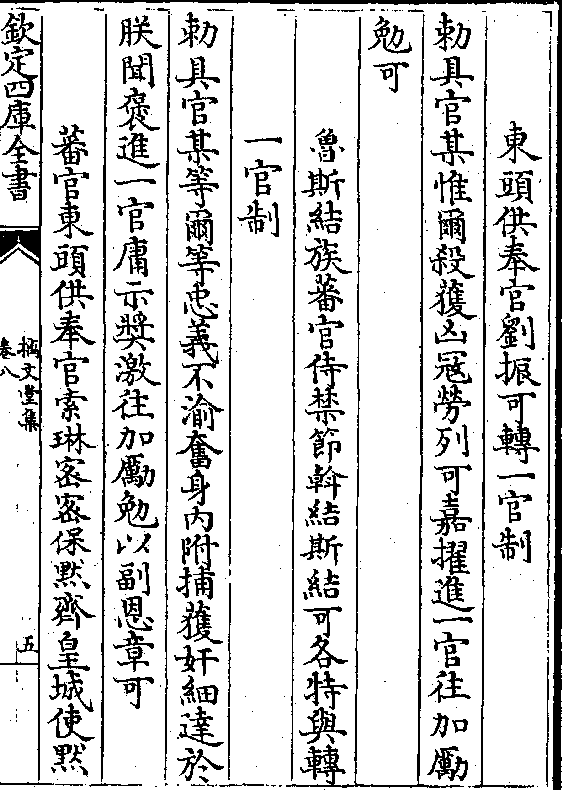 東頭供奉官劉振可轉一官制
勅具官某惟爾殺獲凶冦勞列可嘉擢進一官往加勵
勉可
魯斯結族蕃官侍禁節斡結斯結可各特與轉
一官制
勅具官某等爾等忠義不渝奮身内附捕獲奸細達於
朕聞褒進一官庸示奬激往加勵勉以副恩章可
蕃官東頭供奉官索琳宻宻保㸃齊皇城使㸃
欽定四庫全書
摛文堂集
卷八
五